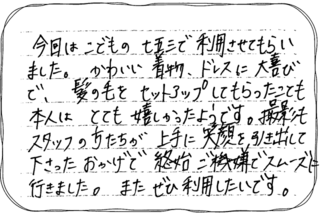 今回はこどもの七五三で利用させてもらい
ました。かわいい着物、ドレスに大喜び
で、髪の毛をセットアップしてもらったことも
本人はとても嬉しかったようです。撮影も
スタッフの方たちが上手に笑顔を引き出して
下さったおかげで終始ご機嫌でスムーズに
行きました。またぜひ利用したいです。